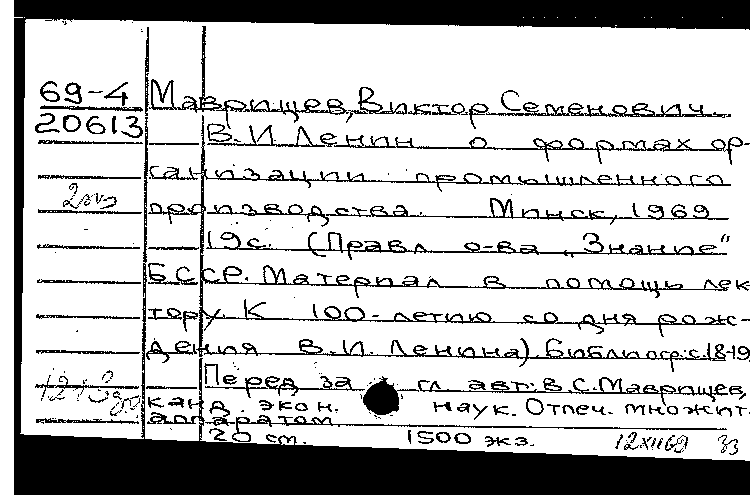 69-4 Маврищев, Виктор Семенович.
20613 В.И Ленин о формах ор-
ганизации промышленного
производства. Минск, 1969
19с. (Правл о-ва „Знание"
БССР. Материал в помощь лек
тору. К 100-летию со дня рож-
дения В.И. Ленина). Библиогр: с.18-19
Перед загл авт: В.С. Маврищев,
канд. экон. наук. Отпеч. множит.
аппаратом.
20 см. 1500 экз. 12XII69